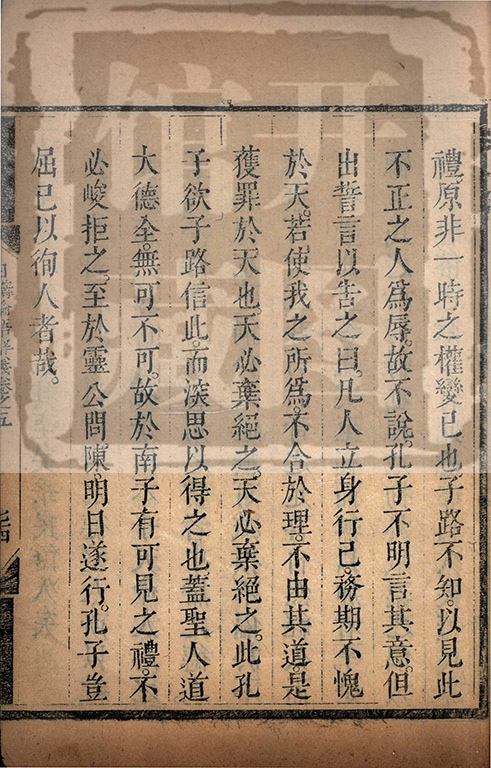 禮原非一時之權變已也子路不知。以見此
不正之人爲辱。故不說。孔子不明言其意。但
出誓言以告之曰。凡人立身行己。務期不愧
於天。若使我之所爲。不合於理。不由其道。是
獲罪於天也。天必棄絕之。天必棄絕之。此孔
子欲子路信此。而深思以得之也蓋聖人道
大德全。無可不可。故於南子有可見之禮。不
必峻拒之。至於靈公問陳。明日遂行。孔子豈
屈已以徇人者哉。